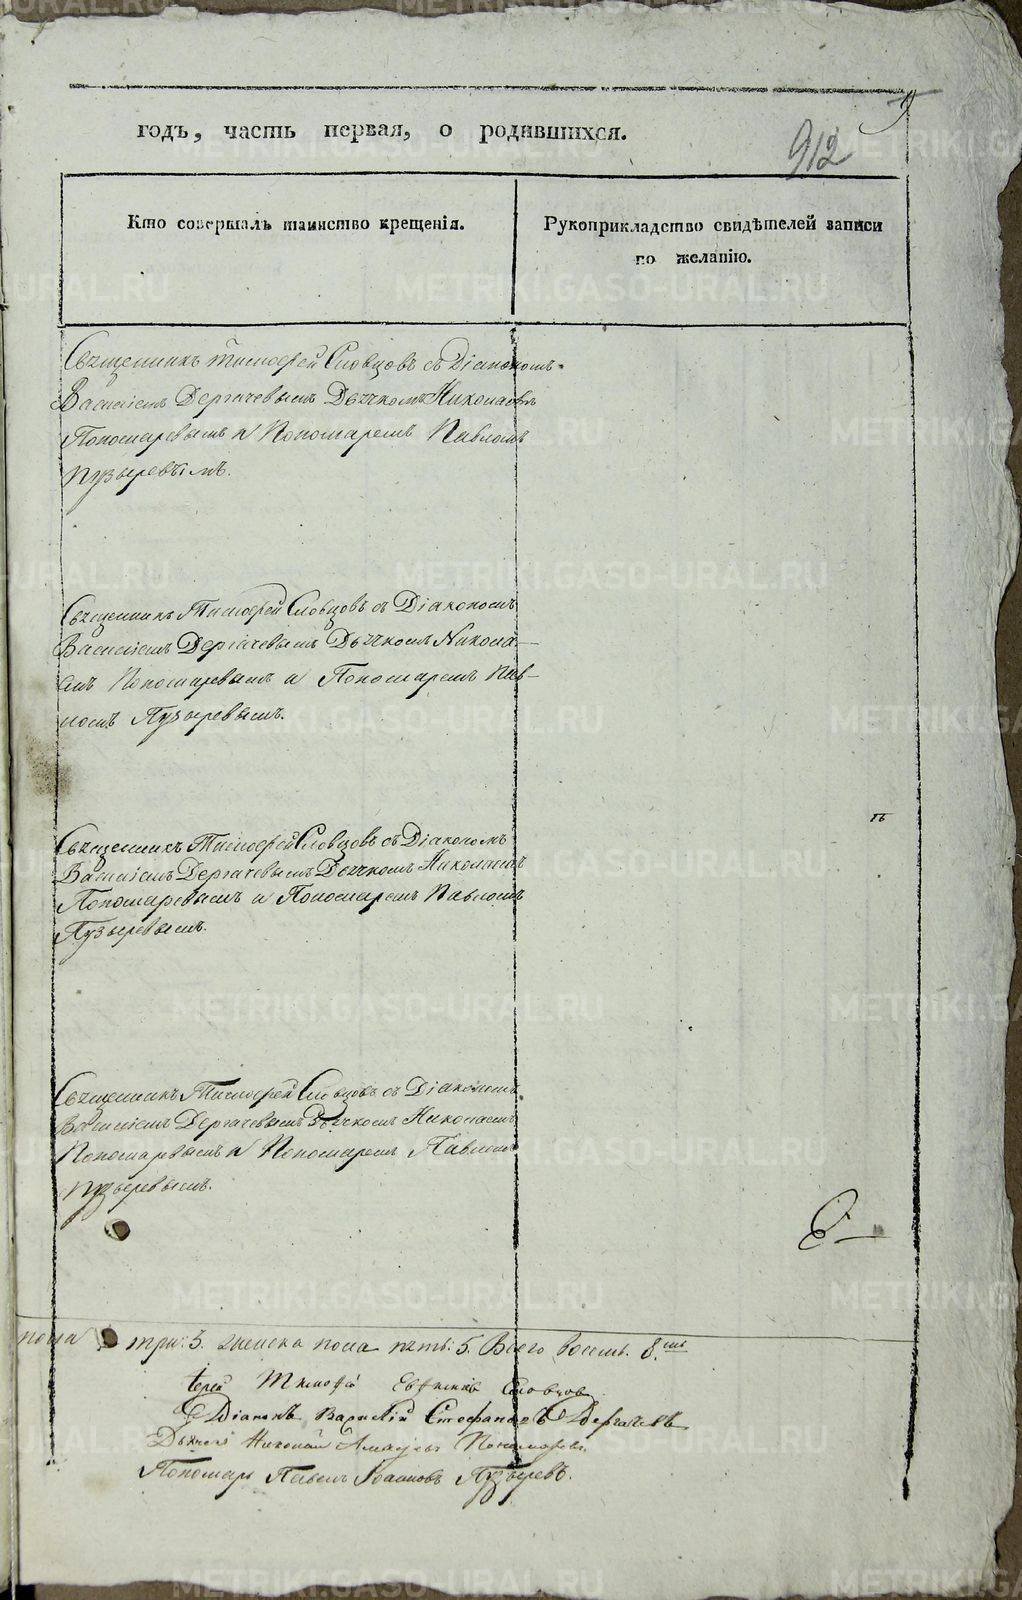 годъ, часть первая, о родившихся.
912
Кто совершалъ таинство крещенія.
Рукоприкладство свидѣтелей записи
по желанію.
Священникъ Тимофей Словцовъ съ Діакономъ
Василіемъ Дергачевымъ Дьячкомъ Николаемъ
Пономаревымъ и Пономаремъ Павломъ
Пузыревымъ.
Священникъ Тимофей Словцовъ съ Діакономъ
Василіемъ Дергачевымъ Дьячкомъ Никола-
емъ Пономаревымъ и Пономаремъ Пав-
ломъ Пузыревымъ.
Священникъ Тимофей Словцовъ съ Діакономъ
Василіемъ Дергачевымъ Дьячкомъ Николаемъ
Пономаревымъ и Пономаремъ Павломъ
Пузыревымъ.
Священникъ Тимофей Словцовъ съ Діакономъ
Василіемъ Дергачевымъ Дьячкомъ Николаемъ
Пономаревымъ и Пономаремъ Павломъ
Пузыревымъ.
пола три: 3. женска пола пять: 5. Всего восемь. 8.мь
Іерей Тимофей Словцов
Діаконъ Василій Стефановъ Дергачевъ
Дьячекъ Николай Пономаревъ
Пономарь Павелъ Іоанновъ Пузыревъ.
METRIKI.GASO-URAL.RU